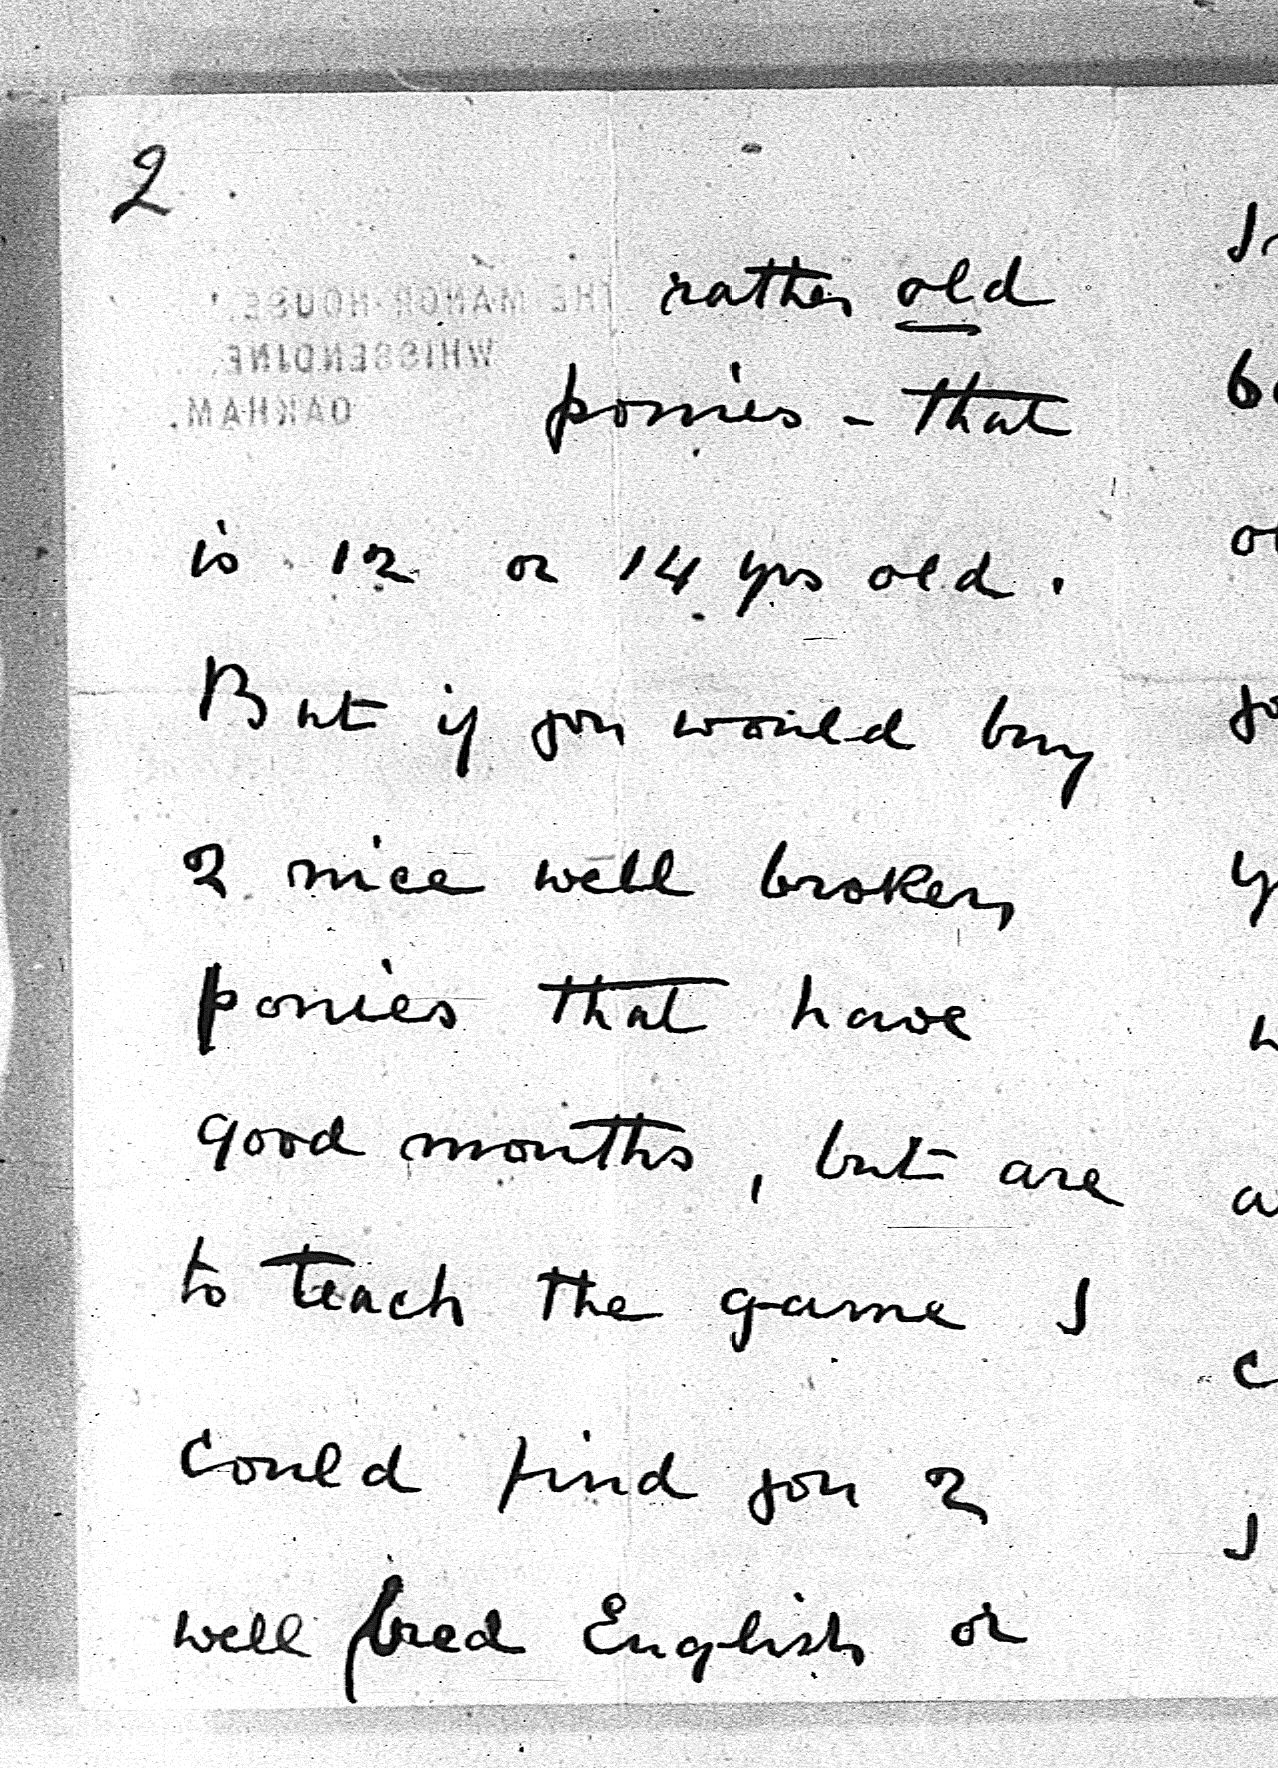 2.
THE MANOR HOUSE.
WHISSENDINE.
OAKHAM.
rather old
ponies - that
is 12 or 14 yrs old.
But if you would buy
2 nice well broken
ponies that have
good mouths, but are
to teach the game I
could find you 2
well bred English or